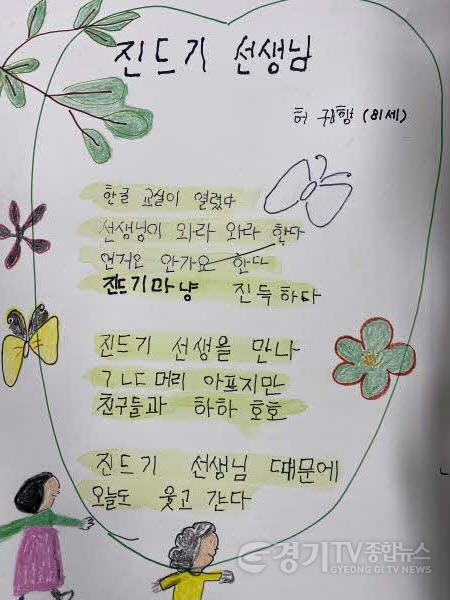 진드기 선생님
허 귀행 (81세)
한글 교실이 열렸다
선생님이 와라 와라 한다
안가요 한다
진드기마냥 진득하다
진드기 선생을 만나
ㄱㄴㄷ 머리 아프지만
친구들과 하하 호호
진드기 선생님 때문에
오늘도 웃고 간다
경기TV종합뉴스
GYEONG GI TV NEWS